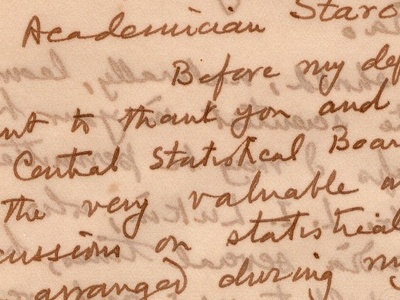 Academician Staro
Before my dep
nt to thank you and
Central Statistical Boar
the very valuable a
cussions on statistical
arranged during my